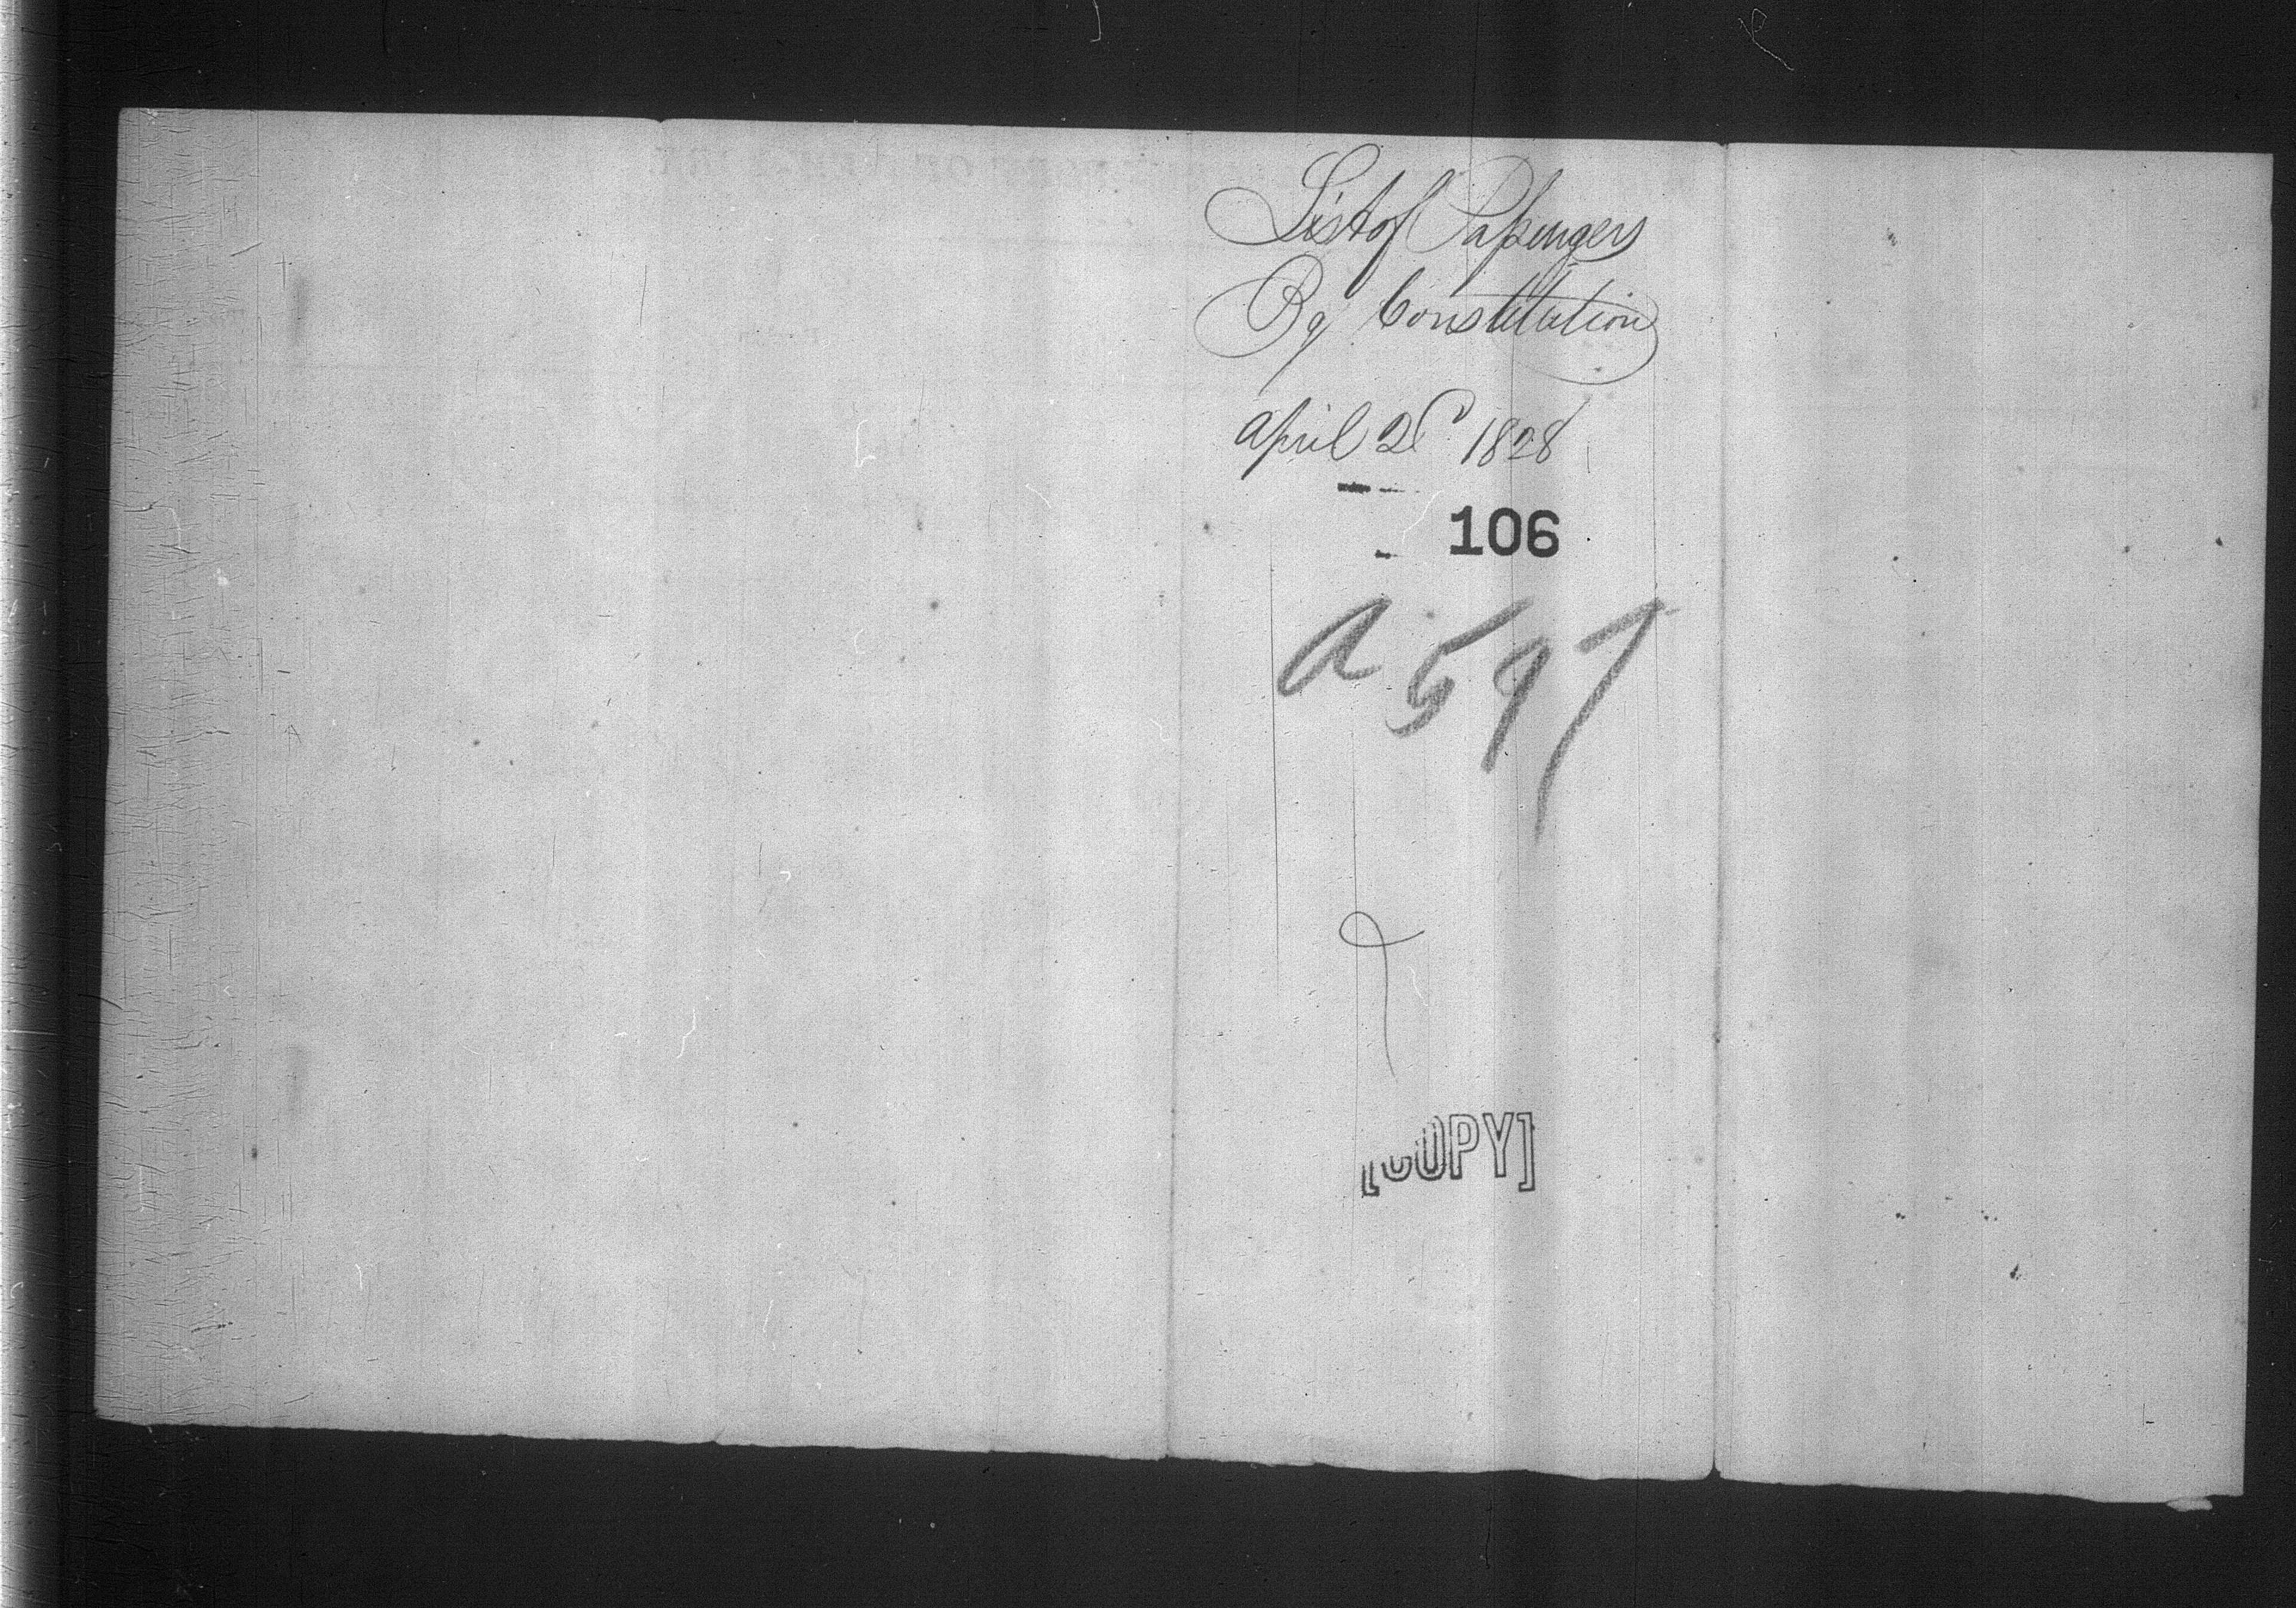 List of Passengers
Bg Constitution
April 2d 1828
106
A 597
[COPY]